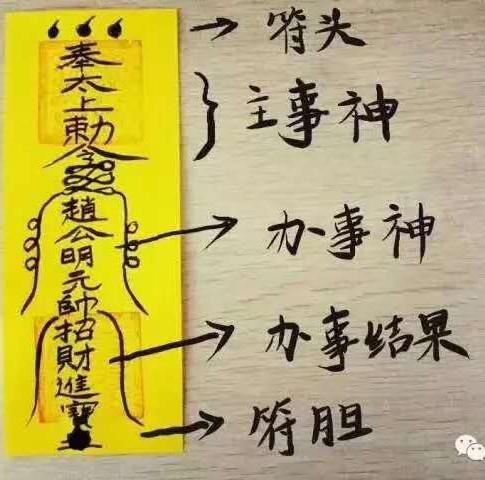 奉太上勅令
趙公明元帥招財進寶
符头
主事神
办事神
办事结果
符胆